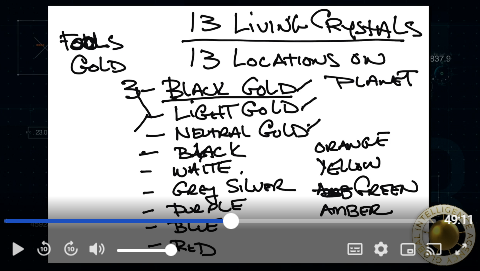 13 LIVING CRYSTALS
FOOLS
GOLD
13 LOCATIONS ON
PLANET
3 - BLACK GOLD ✓
- LIGHT GOLD ✓
- NEUTRAL GOLD ✓
- BLACK
- WHITE.
- GREY SILVER
- PURPLE
- BLUE
- RED
ORANGE
YELLOW
GREEN
AMBER
837.9
49:11
10 10